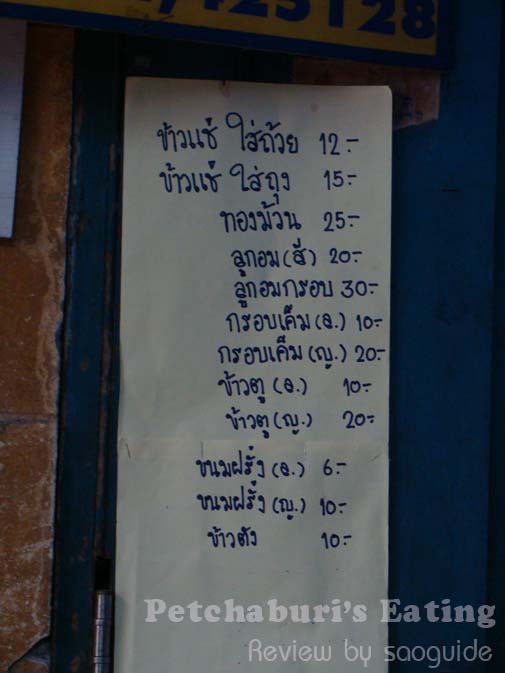 425128
ข้าวแช่ ใส่ถ้วย 12.-
ข้าวแช่ ใส่ถุง 15.-
ทองม้วน 25.-
ลูกอม (สี) 20.-
ลูกอมกรอบ 30.-
กรอบเค็ม (ล.) 10.-
กรอบเค็ม (ญ.) 20.-
ข้าวตู (ล.) 10.-
ข้าวตู (ญ.) 20.-
ขนมฝรั่ง (ล.) 6.-
ขนมฝรั่ง (ญ.) 10.-
ข้าวตัง 10.-
Petchaburi's Eating
Review by saoguide